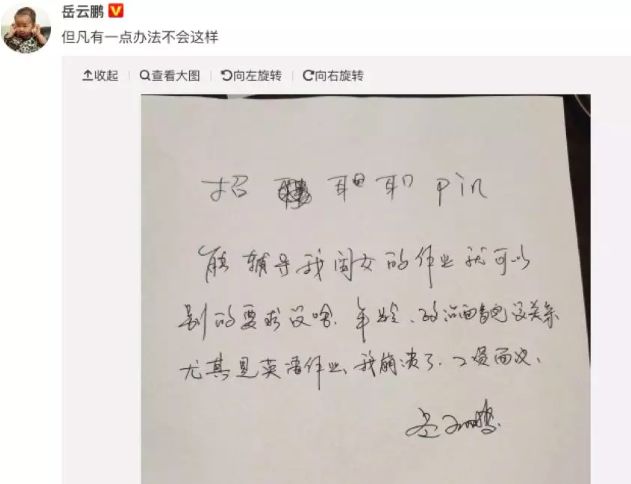 岳云鹏
但凡有一点办法不会这样
收起 查看大图 向左旋转 向右旋转
招 耳卩 耳只 Pin
能辅导我闺女的作业就可以
别的要求没啥.年龄、政治面貌没关系
尤其是英语作业、我崩溃了.工资面议、
岳云鹏